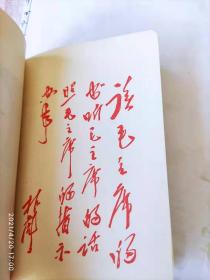 读毛主席的
书听毛主席的话
照毛主席的指示
办事
林彪
2021/4/20 17:00